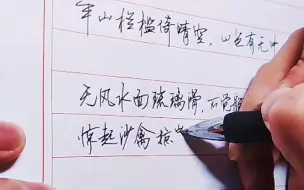 平山栏槛倚晴空，山色有无中
无风水面琉璃滑，不觉船
惊起沙禽掠